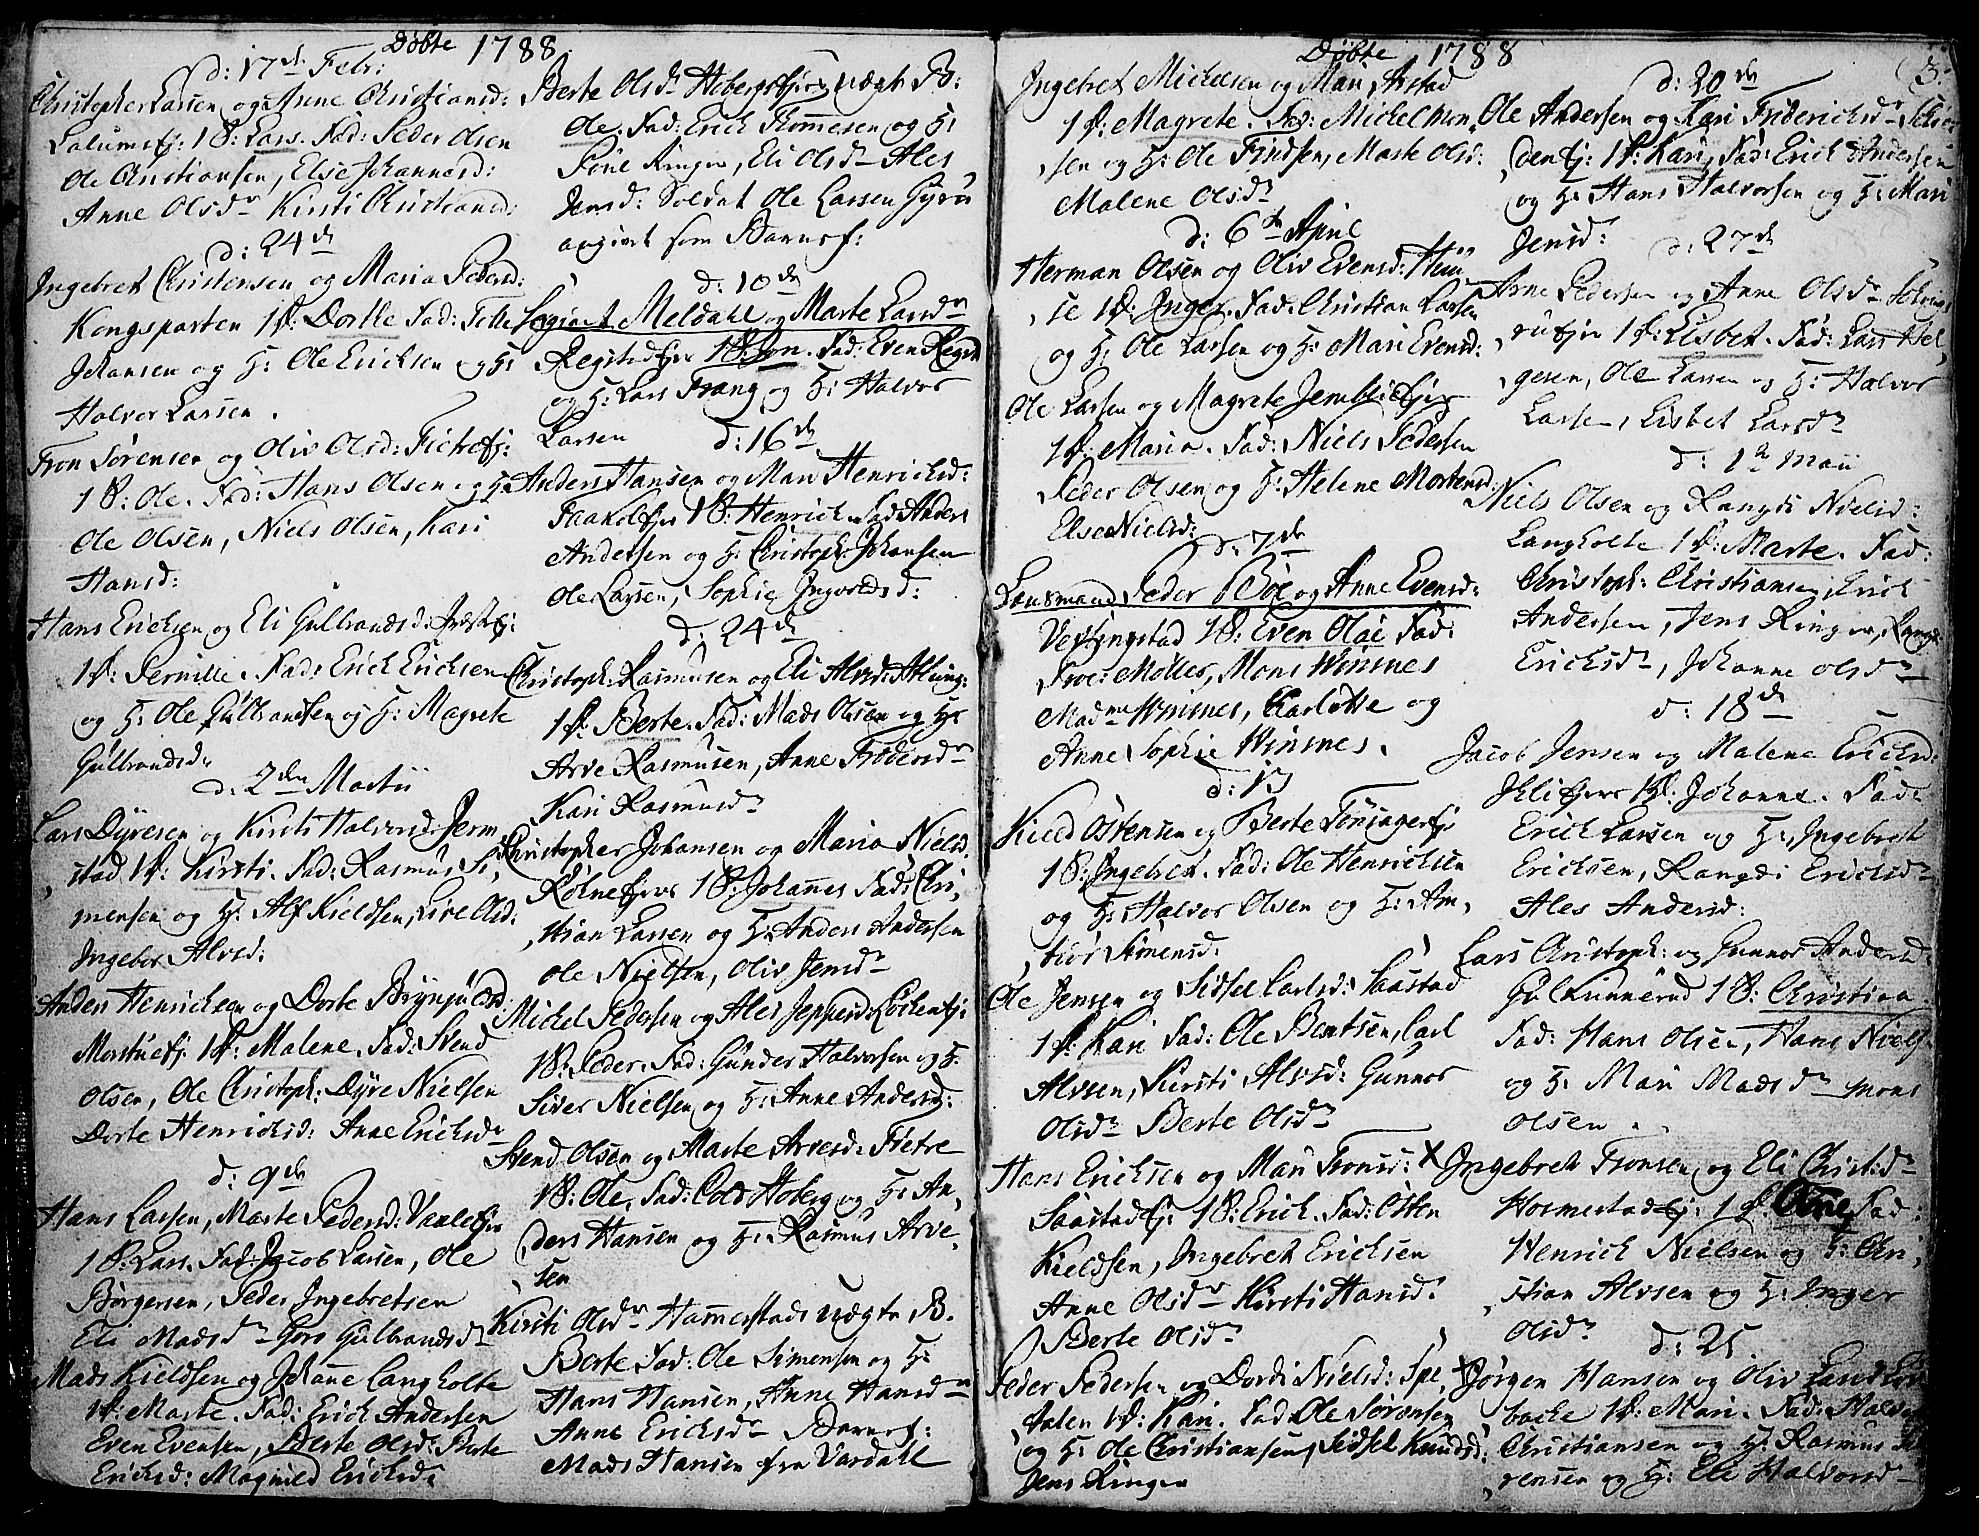 Døbte 1788
d: 17de Febr:
Christopher Larsen og Anne Christiansd:
Lalumsej: 1 P: Lars. Fad: Peder Olsen
Ole Christiansen, Else Johannesd:
Anne Olsdr Kirsti Christiansd:
d: 24de
Ingebret Christensen og Maria Pedersd:
Kongsparten 1 P: Dorthe Fad:
Johansen og H: Ole Ericksen og H:
Halvor Larsen.
Tron Sørensen og Oliv Olsd:
1 P: Ole. Fad: Hans Olsen og H:
Ole Olsen, Niels Olsen, Kari
Hansd:
Hans Ericksen og Eli Gulbrandsd:
1 P: Pernille. Fad: Erick Ericksen
og H: Ole Gulbrandsen og H: Magrete
Gulbrandsd:
d: 2den Martii
Lars Dyresen og Kirsti Halvorsd: Jerm,
stad 1 P: Kirsti. Fad: Rasmus Si,
mensen og H: Alf Kieldsen, Live Olsd:
Ingebor Alvsd:
Anders Henricksen og Dorte Brynjulvsd:
Morstuefj. 1 P: Malene. Fad: Svend
Olsen, Ole Christoph: Dyre Nielsen
Dorte Henricksd: Anne Ericksdr
d: 9de
Hans Larsen, Marte Pedersd: Vaalefj:
1 P: Lars. Fad: Jacob Larsen, Ole
Børgersen, Peder Ingebretsen
Eli Madsdr Goro Gulbrandsdr
Mads Kieldsen og Johanne Langholte
1 P: Marte. Fad: Erick Andersen
Even Evensen, Berte Olsd: Berte
Ericksd: Magnild Ericksd:
Berte Olsdr Hobergsfj: uægte B:
Ole. Fad: Erick Tommesen og H:
Pone Ringer, Eli Olsdr Ales
Jensd: Soldat Ole Larsen Gyrü
angivet som Barnef:
d: 10de
Sergiant Meldahl og Marte Larsdr
Regstedfj: 1 P: Jon. Fad: Even Regst
og H: Lars Trang og H: Halvor
Larsen
d: 16de
Anders Hansen og Mari Henricksd:
1 P: Henrick Fad: Anders
Andersen og H: Christoph: Johansen
Ole Larsen, Sophie Ingvoldsd:
d: 24de
Christoph: Rasmusen og Eli Alvsd:
1 P: Berte. Fad: Mads Olsen og H:
Arve Rasmusen, Anne
Kari Rasmusdr
Christopher Johansen og Maria Nielsd:
1 P: Johannes Fad: Chri,
stian Larsen og H: Anders Andersen
Ole Nielsen, Oliv Jensdr
Michel Pedersen og Ales Jeppesd:
1 P: Peder. Fad: Gunder Halvorsen og H:
Siver Nielsen og H: Anne Andersd:
Svend Olsen og Marte Arvesd:
1 P: Ole. Fad: Cold Hoberg og H: An,
ders Hansen og H: Rasmus Arve,
sen
Kirsti Olsdr Hammerstads uægte B.
Berte Fad: Ole Simensen og H:
Hans Hansen, Anne Hansdr
Anne Ericksdr Barnef:
Mads Hansen fra Vardahl
Døbte 1788
3
Ingebret Michelsen og Mari Arstad
1 P: Magrete. Fad: Michel Mon,
sen og H: Ole Findsen, Marte Olsd:
Malene Olsdr
d: 6te April
Herman Olsen og Oliv Evensd:
se 1 P: Inger. Fad: Christian Larsen
og H: Ole Larsen og H: Mari Evensd:
Ole Larsen og Magrete
1 P: Maria. Fad: Niels Pedersen
Peder Olsen og H: Helene Mortensd:
Else Nielsd:
d: 7de
Lensmand Peder Böe og Anne Evensd:
Vestyngstad 1 P: Even Olai Fad:
Møller, Mons Winsnes
Madme Winsnes, Karlotte og
Anne Sophie Winsnes.
d: 13
Kield Ostensen og Berte
1 P: Ingebret. Fad: Ole Henricksen
og H: Halvor Olsen og H: Am,
Simensd:
Ole Jensen og Sidsel Carlsd: Saastad
1 P: Kari Fad: Ole Bentsen, Carl
Alvsen, Kirsti Alvsd: Gunnor
Olsdr Berte Olsdr
Hans Ericksen og Mari Tronsd:
Saastadej: 1 P: Erick. Fad: Osten
Kieldsen, Ingebret Ericksen
Anne Olsdr Kirsti Hansd:
Berte Olsdr
Peder Pedersen og Dordi Nielsd: Spe,
talen 1 P: Kari. Fad: Ole Sørensen
og H: Ole Christiansen, Sidsel Knudsd:
Jens Ringer
d: 20de
Ole Andersen og Kari Friderichsdr
1 P: Kari, Fad: Erick Andersen
og H: Hans Halvorsen og H: Mari
Jensd:
d: 27de
Arne Pedersen og Anne Olsdr
1 P: Lisbet. Fad: Lars Hel,
gesen, Ole Larsen og H: Halvor
Larsen, Lisbet Larsdr
d: 1te Maii
Niels Olsen og Rangdi Nielsd:
Langholte 1 P: Marte. Fad:
Christoph: Christiansen, Erick
Andersen, Jens Ringer, Rangdi
Ericksdr, Johanne Olsdr
d: 18de
Jacob Jensen og Malene Ericksd:
1 P: Johanne. Fad:
Erick Larsen og H: Ingebret
Ericksen, Rangdi Ericksdr
Ales Andersd:
Lars Christoph: og Gunnor Andersd:
1 P: Christian.
Fad: Hans Olsen, Hans Niels,
og H: Mari Madsdr Mons
Olsen.
X Ingebret Tronsen og Eli Christdr
Hormestadej: 1 P: Anne Fad:
Henrick Nielsen og H: Chri,
stian Alvsen og H: Inger
Olsdr
d: 25
X Jørgen Hansen og Oliv
backe 1 P: Mari. Fad: Halvor
Christiansen og H: Rasmus Sø
rensen og H: Eli Halvorsdr